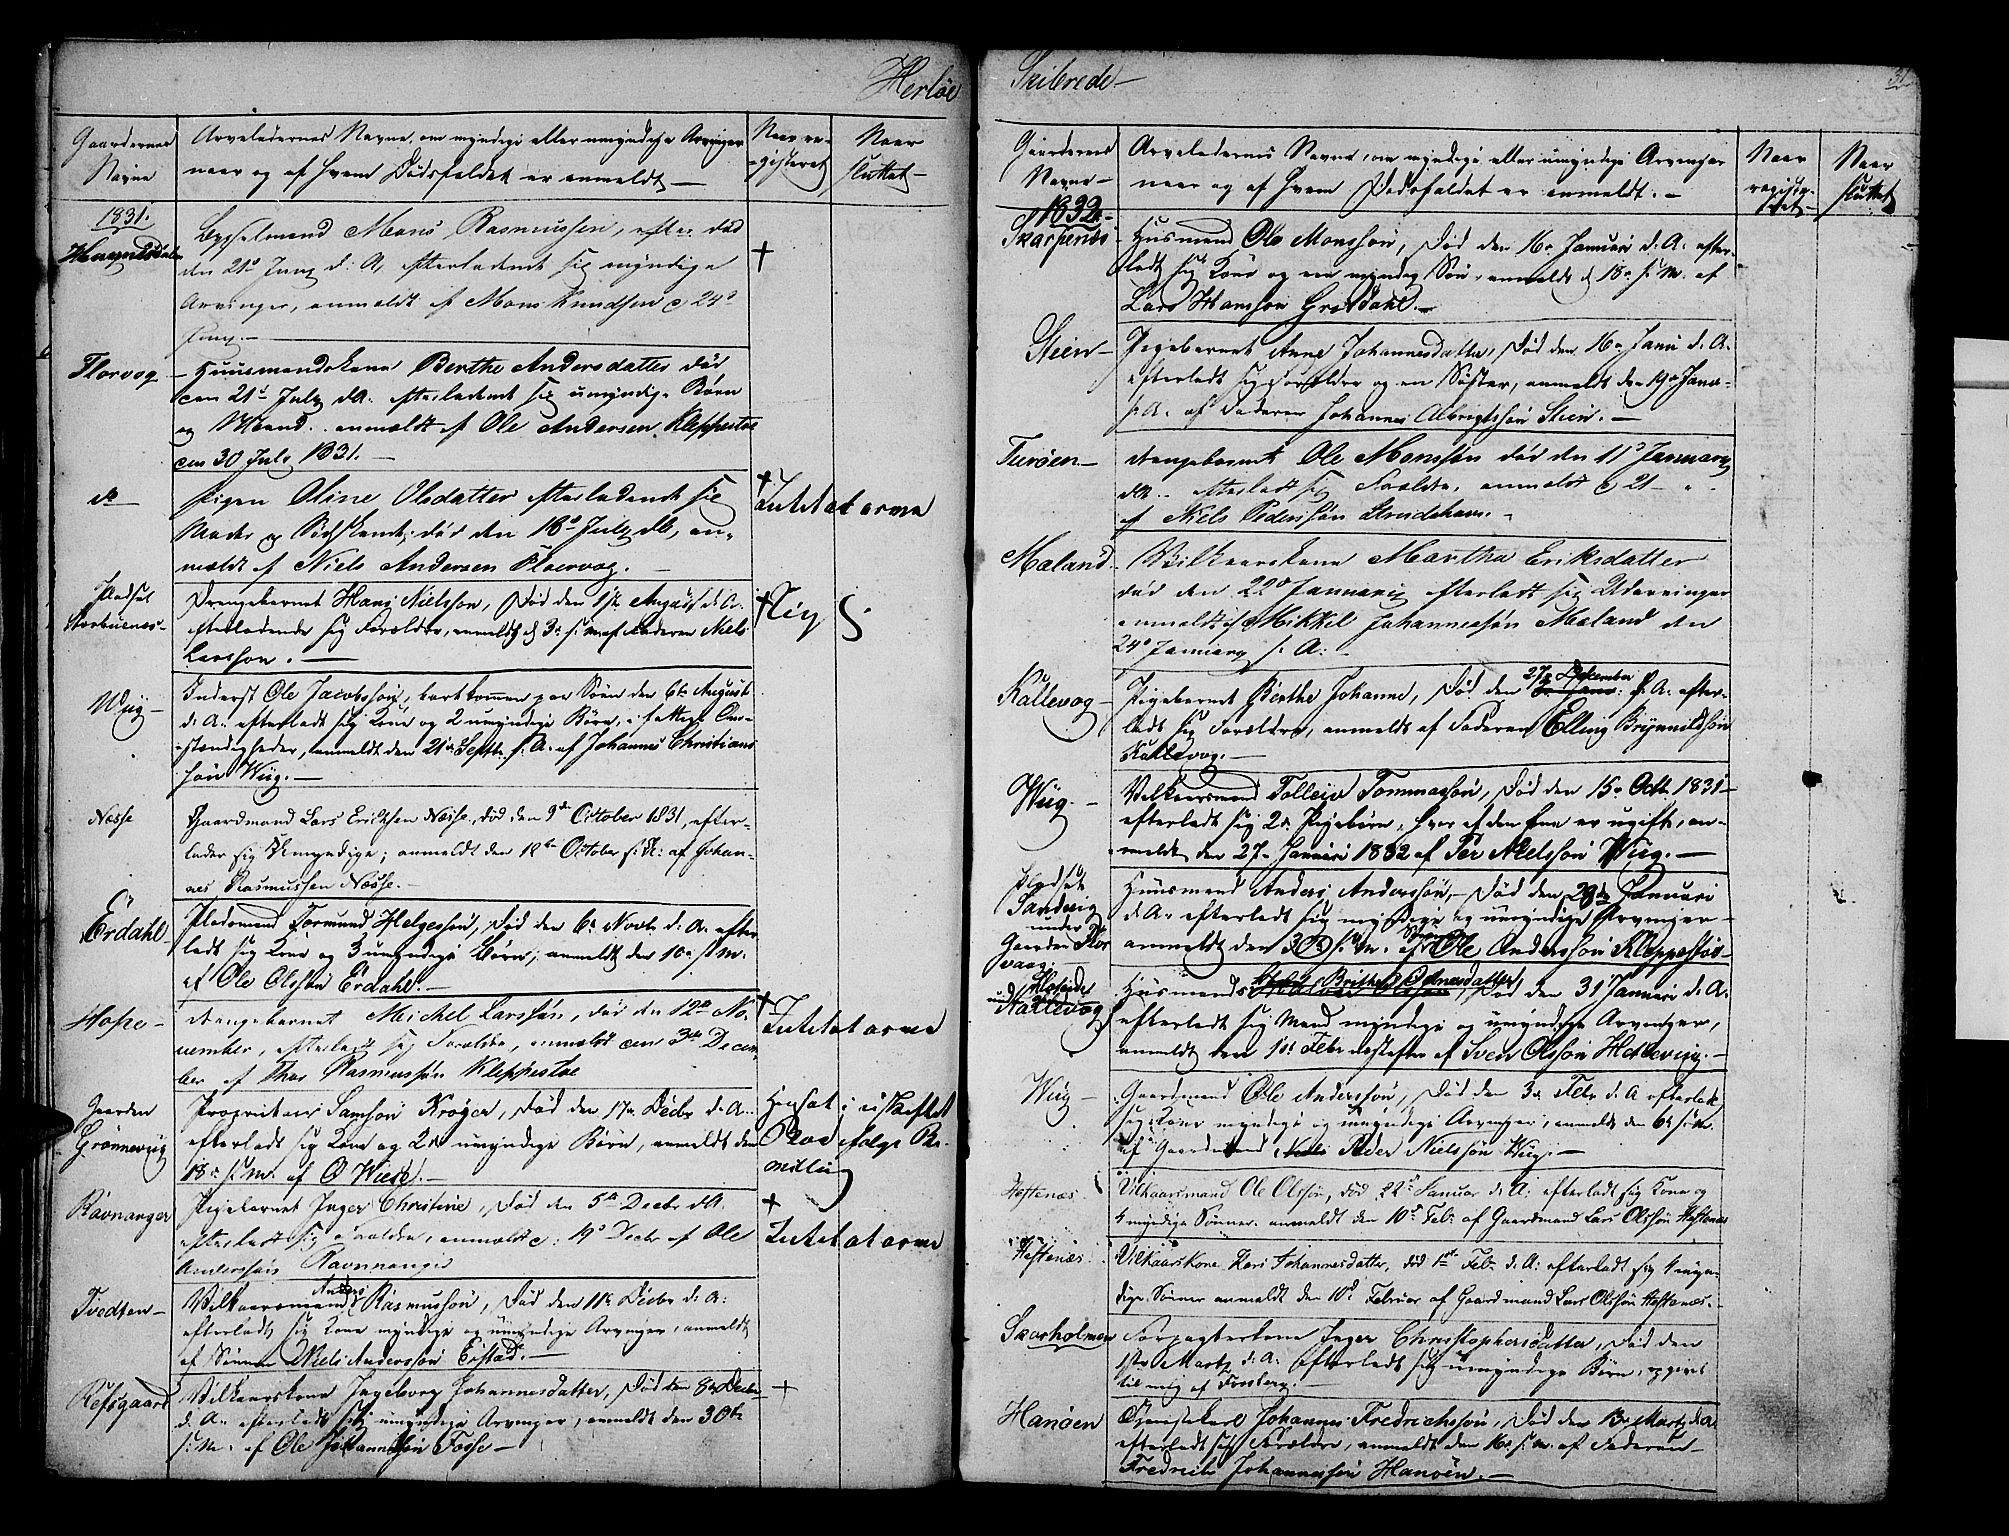 Herløe
Gaardernes Navne
Arveladernes Navne, om myndige eller umyndige Arvinger
naar og af hvem Dødsfaldet er anmeldt —
Naar registeret
Naar sluttet —
1831.
Mons Rasmussen, efter død
den 21de Juny d: A, efterladende sig myndige
Arvinger, anmeldt af Mons Knudsen d 24de
Juny. —
Florvog — Huusmandskone Berthe Andersdatter død
den 21de July dA. efterladende sig umyndige Børn
og Mand. anmeldt af Ole Andersen Kleppestøe
den 30 July 1831. —
do — Pigen Oline Olsdatter efterladende sig
Moder og Sødskende, død den 18de July dA, an-
meldt af Niels Andersen Floervog. —
Intet at arve
Pladset
Drengebarnet Hans Nielssøn, Død den 1ste August d. A.
efterladende sig Forældre, anmeldt d 3de s. m af Faderen Niels
Larsson. —
Wiig — Inderst Ole Jacobssøn, bortkommen paa Søen den 6te August
d. A. efterladt sig Kone og 2 umyndige Børn, i fattige Om-
stændigheder, anmeldt den 21de Septbr. s. A. af Johannes Christians
søn Wiig. —
Nesse
Gaardmand Lars Ericksen Nesse, død den 9de October 1831, efter-
lader sig Umyndige; anmeldt den 12te October s: A: af Johan-
nes Rasmussen Nesse. —
Erdahl — Pladsmand Tormund Helgessøn, Død den 6te Novbr d. A. efter
ladt sig Kone og 3 umyndige Børn, anmeldt den 10de s. m.
af Ole Olssøn Erdahl. —
Hope — Drengebarnet Michel Larssøn, død den 12te No-
vember, efterladt sig Forældre, anmeldt den 3die Decem
ber af Thor Rasmussøn Kleppestøe
Intet at arve
Gaarden
Grønnevig
Proprietair Samson Krøger, Død den 17de Decbr d. A.
efterladt sig Kone og 2de umyndige Børn, anmeldt den
18de s. m. af O Wiese. —
Hensat i uskiftet
Boe ifølge Be-
villing
Ravnanger
Pigebarnet Inger Christine, død den 5te Decbr dA.
efterladt sig Forældre, anmeldt d: 19de Decbr af Ole
Anderssøn Ravnnanger
Intet at arve
Tvedten — Vilkaarsmand Anders Rasmussøn, Død den 11te Decbr d. A:
efterladt sig Kone myndige og umyndige Arvinger, anmeldt
af Sønnen Niels Anderssøn Eistad. —
Refsgaard
Vilkaarskone Ingeborg Johannesdatter, Død den 8de Decbr
d. A. efterladt sig umyndige Arvinger, anmeldt den 30te
s. m. af Ole Johannessøn Fosse —
Skibrede —
31
Gaardenes
Navne —
Arveladernes Navne, om myndige eller umyndige Arvinger
naar og af hvem Dødsfaldet er anmeldt. —
Naar registeret —
Naar sluttet
1832 —
Skarpenes
Huusmand Ole Monssøn, Død den 16de Januari d. A. efter-
ladt sig Kone og een myndig Søn, anmeldt d 18de s. m. af
Lars Hanssøn Grøtdahl. —
Stein — Pigebarnet Anne Johannesdatter, Død den 16de Janu d. A.
efterladt sig Forældre og en Søster, anmeldt den 19de Janu-
s. A. af Faderen Johannes Albregtssøn Stein. —
Turøen — Drengebarnet Ole Monssøn død den 11te January
dA. efterladt sig Forældre, anmeldt d 21 —
af Niels Pederssøn
Mæland — Vilkaarskone Martha Eriksdatter
død den 22de January efterladt sig Udarvinger
anmeldt af Mikkel Johannessøn Mæland den
24de January s. A: —
Kallevog — Pigebarnet Berthe Johanne, Død den 27de December f. A. efter-
ladt sig Forældre, anmeldt af Faderen Elling Brynnildssøn
Kallevog. —
Wiig. — Vilkaarsmand Tolleiv Tommassøn, Død den 15de Octb. 1831
efterladt sig 2de Pigebørn, hvor af den Ene er ugift, an-
meldt den 27de Januari 1832 af Per Nielssøn Wiig. —
Pladset
Sandvig
under
Gaarden Flor
vaag.
Huusmand Anders Anderssøn, Død den 28de Januari
d. A. efterladt sig myndige og umyndige Arvinger
anmeldt den 30te s. m. af Søn Ole Anderssøn Kleppestøe —
Kallevog
Huusmands Brithe Colmesdatter, Død den 31 Januari d. A.
efterladt sig Mand myndige og umyndige Arvinger,
anmeldt den 10de Febr næstefter af Sven Olssøn Hetlevig. —
Wiig — Gaardmand Ole Anderssøn, Død den 3de Febr. d. A efterladt
sig Kone myndige og umyndige Arvinger, anmeldt den 6te s. m.
af Gaardmand Peder Nielssøn Wiig. —
Heftenæs. Vilkaarsmand Ole Olssøn, død 22de Januar d. A: efterladt sig Kone og
4 myndige Sønner. anmeldt den 10de Feb: af Gaardmand Lars Olssøn Heftenæs
Heftenæs. Vilkaarskone Kari Johannesdatter, død 1ste Feb. d. A: efterladt sig 4 myn-
dige Sønner anmeldt den 10de Februar af Gaardmand Lars Olssøn Heftenæs. —
Skarholmen Forpagterkone Inger Christophersdatter, Død den
1ste Martz d. A. Efterladt sig umyndige Børn, opgivet
til mig af Forsberg. —
Hanøen
Johannes Fredrichssøn, Død den 13de Martz d. A.
efterladt sig Forældre, anmeldt den 16de s. m. af Faderen —
Fredrich Johannessøn Hanøen. —